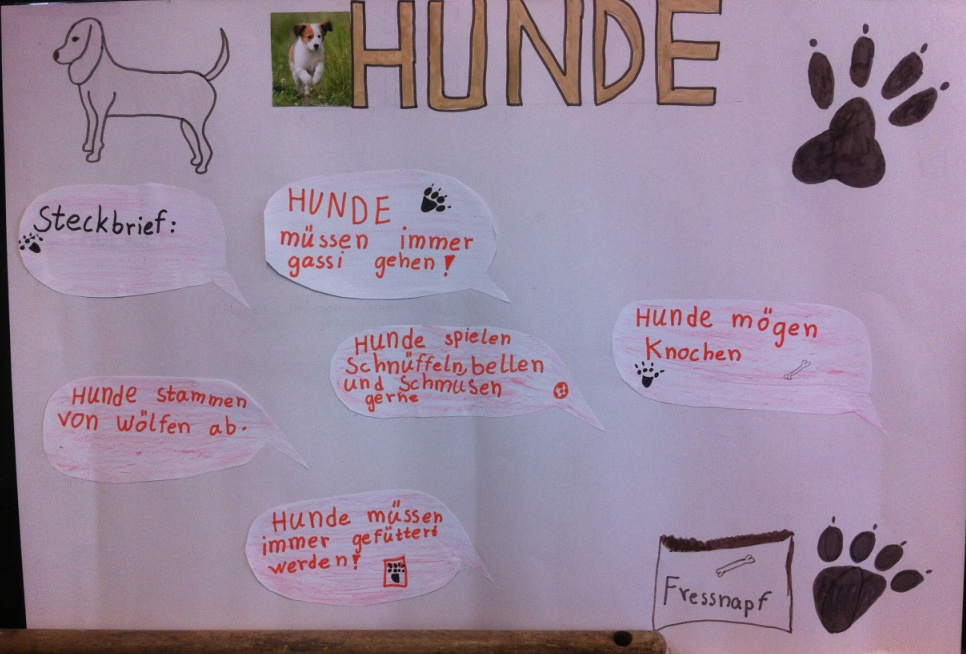 HUNDE
Steckbrief:
HUNDE
müssen immer
gassi gehen!
Hunde mögen
Knochen
Hunde spielen
Schnüffeln, bellen
und Schmusen
gerne
Hunde stammen
von Wölfen ab.
Hunde müssen
immer gefüttert
werden!
Fressnapf